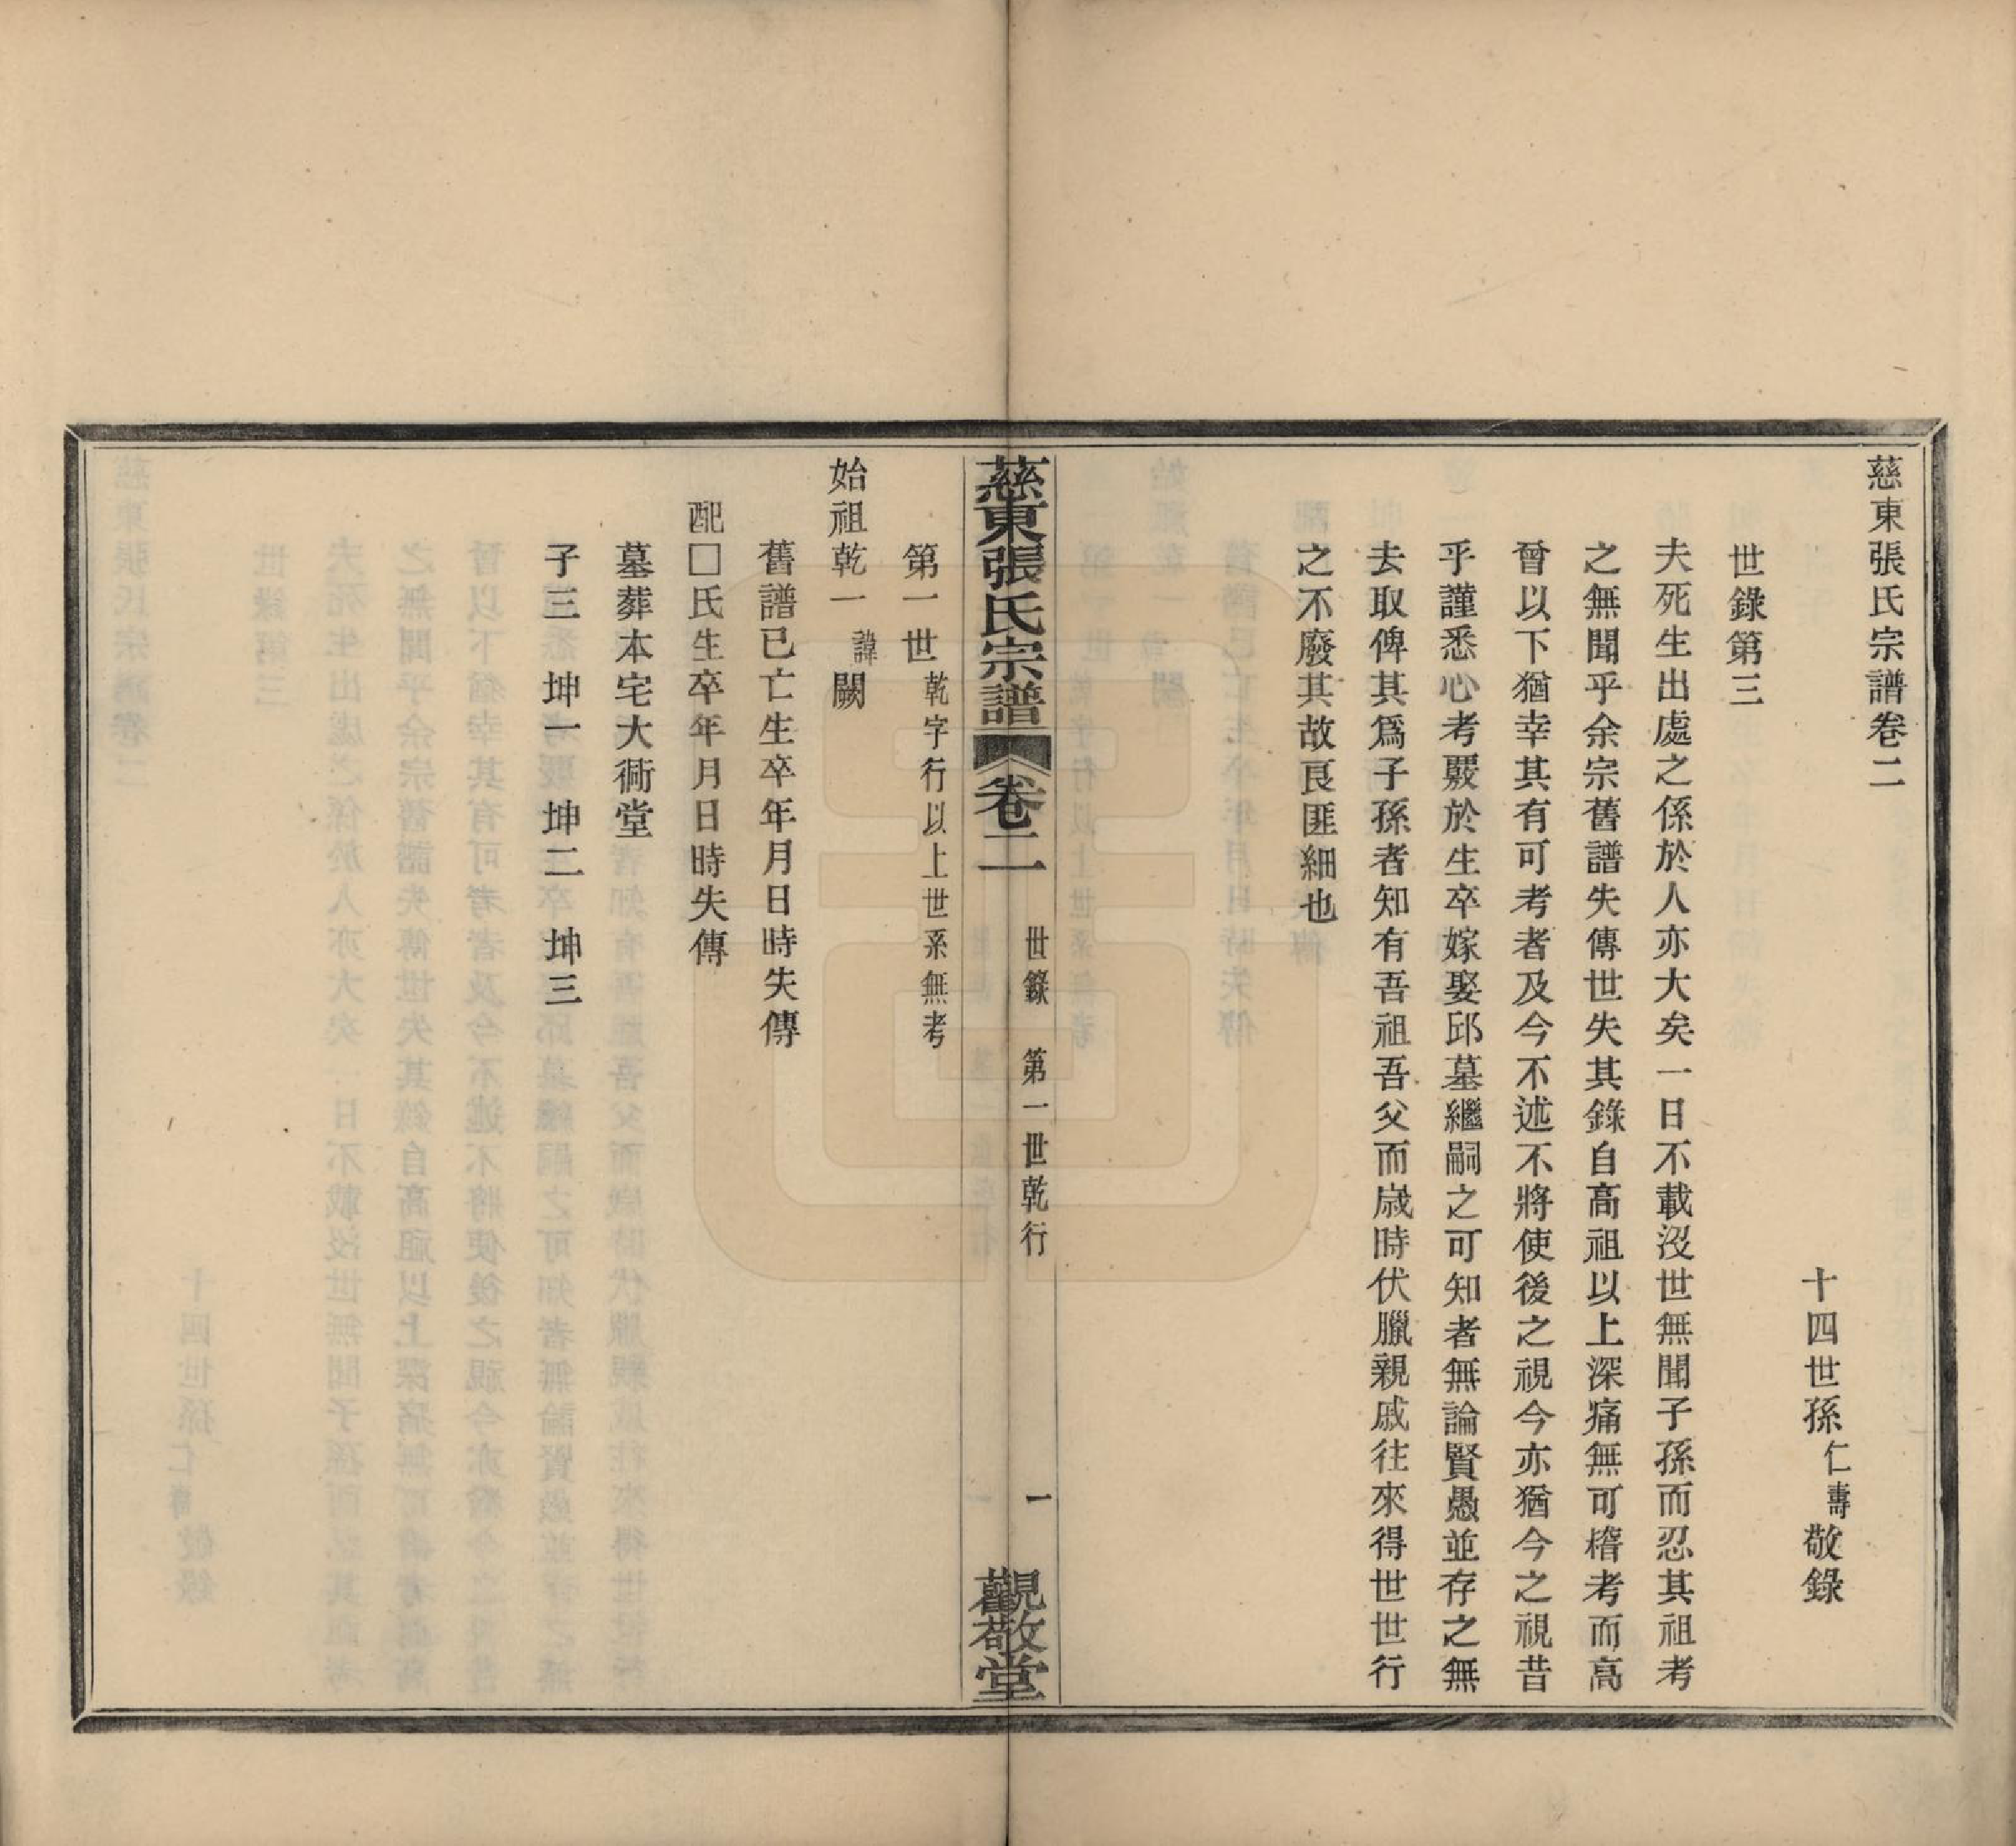 慈東張氏宗譜卷二
十四世孫仁壽敬錄
世錄第三
夫死生出處之係於人亦大矣一日不載沒世無聞子孫而忍其祖考
之無聞乎余宗舊譜失傳世失其錄自高祖以上深痛無可稽考而高
曾以下猶幸其有可考者及今不述不將使後之視今亦猶今之視昔
乎謹悉心考覈於生卒嫁娶邱墓繼嗣之可知者無論賢愚並存之無
去取俾其爲子孫者知有吾祖吾父而歲時伏臘親戚往來得世世行
之不廢其故良匪細也
慈東張氏宗譜 卷二 世錄 第一世乾行 一 觀敬堂
第一世乾字行以上世系無考
始祖乾一諱闕
舊譜已亡生卒年月日時失傳
配□氏生卒年月日時失傳
墓葬本宅大衕堂
子三 坤一 坤二 坤三